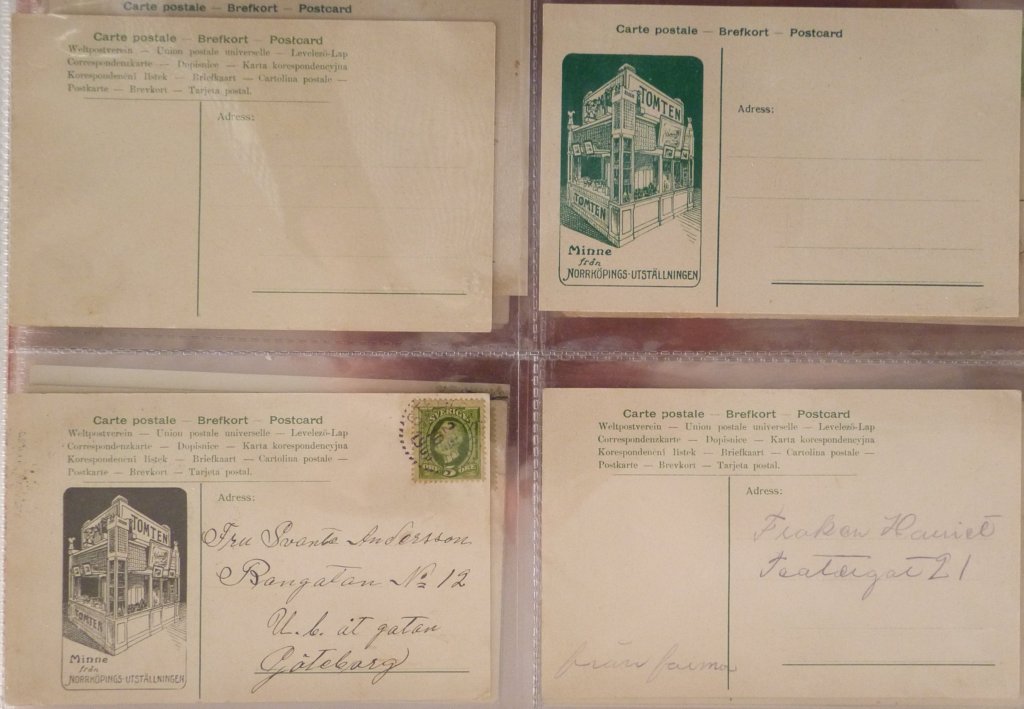 Carte postale — Brefkort — Postcard
Carte postale — Brefkort — Postcard
Weltpostverein — Union postale universelle — Levelező-Lap
Correspondenzkarte — Dopisnice — Karta korespondencyjna
Korespondenční listek — Briefkaart — Cartolina postale —
Postkarte — Brevkort — Tarjeta postal.
Adress:
Carte postale — Brefkort — Postcard
Adress:
TOMTEN
TOMTEN
Minne
från
NORRKÖPINGS-UTSTÄLLNINGEN
Carte postale — Brefkort — Postcard
Weltpostverein — Union postale universelle — Levelező-Lap
Correspondenzkarte — Dopisnice — Karta korespondencyjna
Korespondenční listek — Briefkaart — Cartolina postale —
Postkarte — Brevkort — Tarjeta postal.
SVERIGE
5 ÖRE
Adress:
TOMTEN
TOMTEN
Minne
från
NORRKÖPINGS-UTSTÄLLNINGEN
Fru Svante Andersson
Rangatan No 12
U. b. åt gatan
Göteborg
Carte postale — Brefkort — Postcard
Weltpostverein — Union postale universelle — Levelező-Lap
Correspondenzkarte — Dopisnice — Karta korespondencyjna
Korespondenční listek — Briefkaart — Cartolina postale —
Postkarte — Brevkort — Tarjeta postal.
Adress:
Froken
21